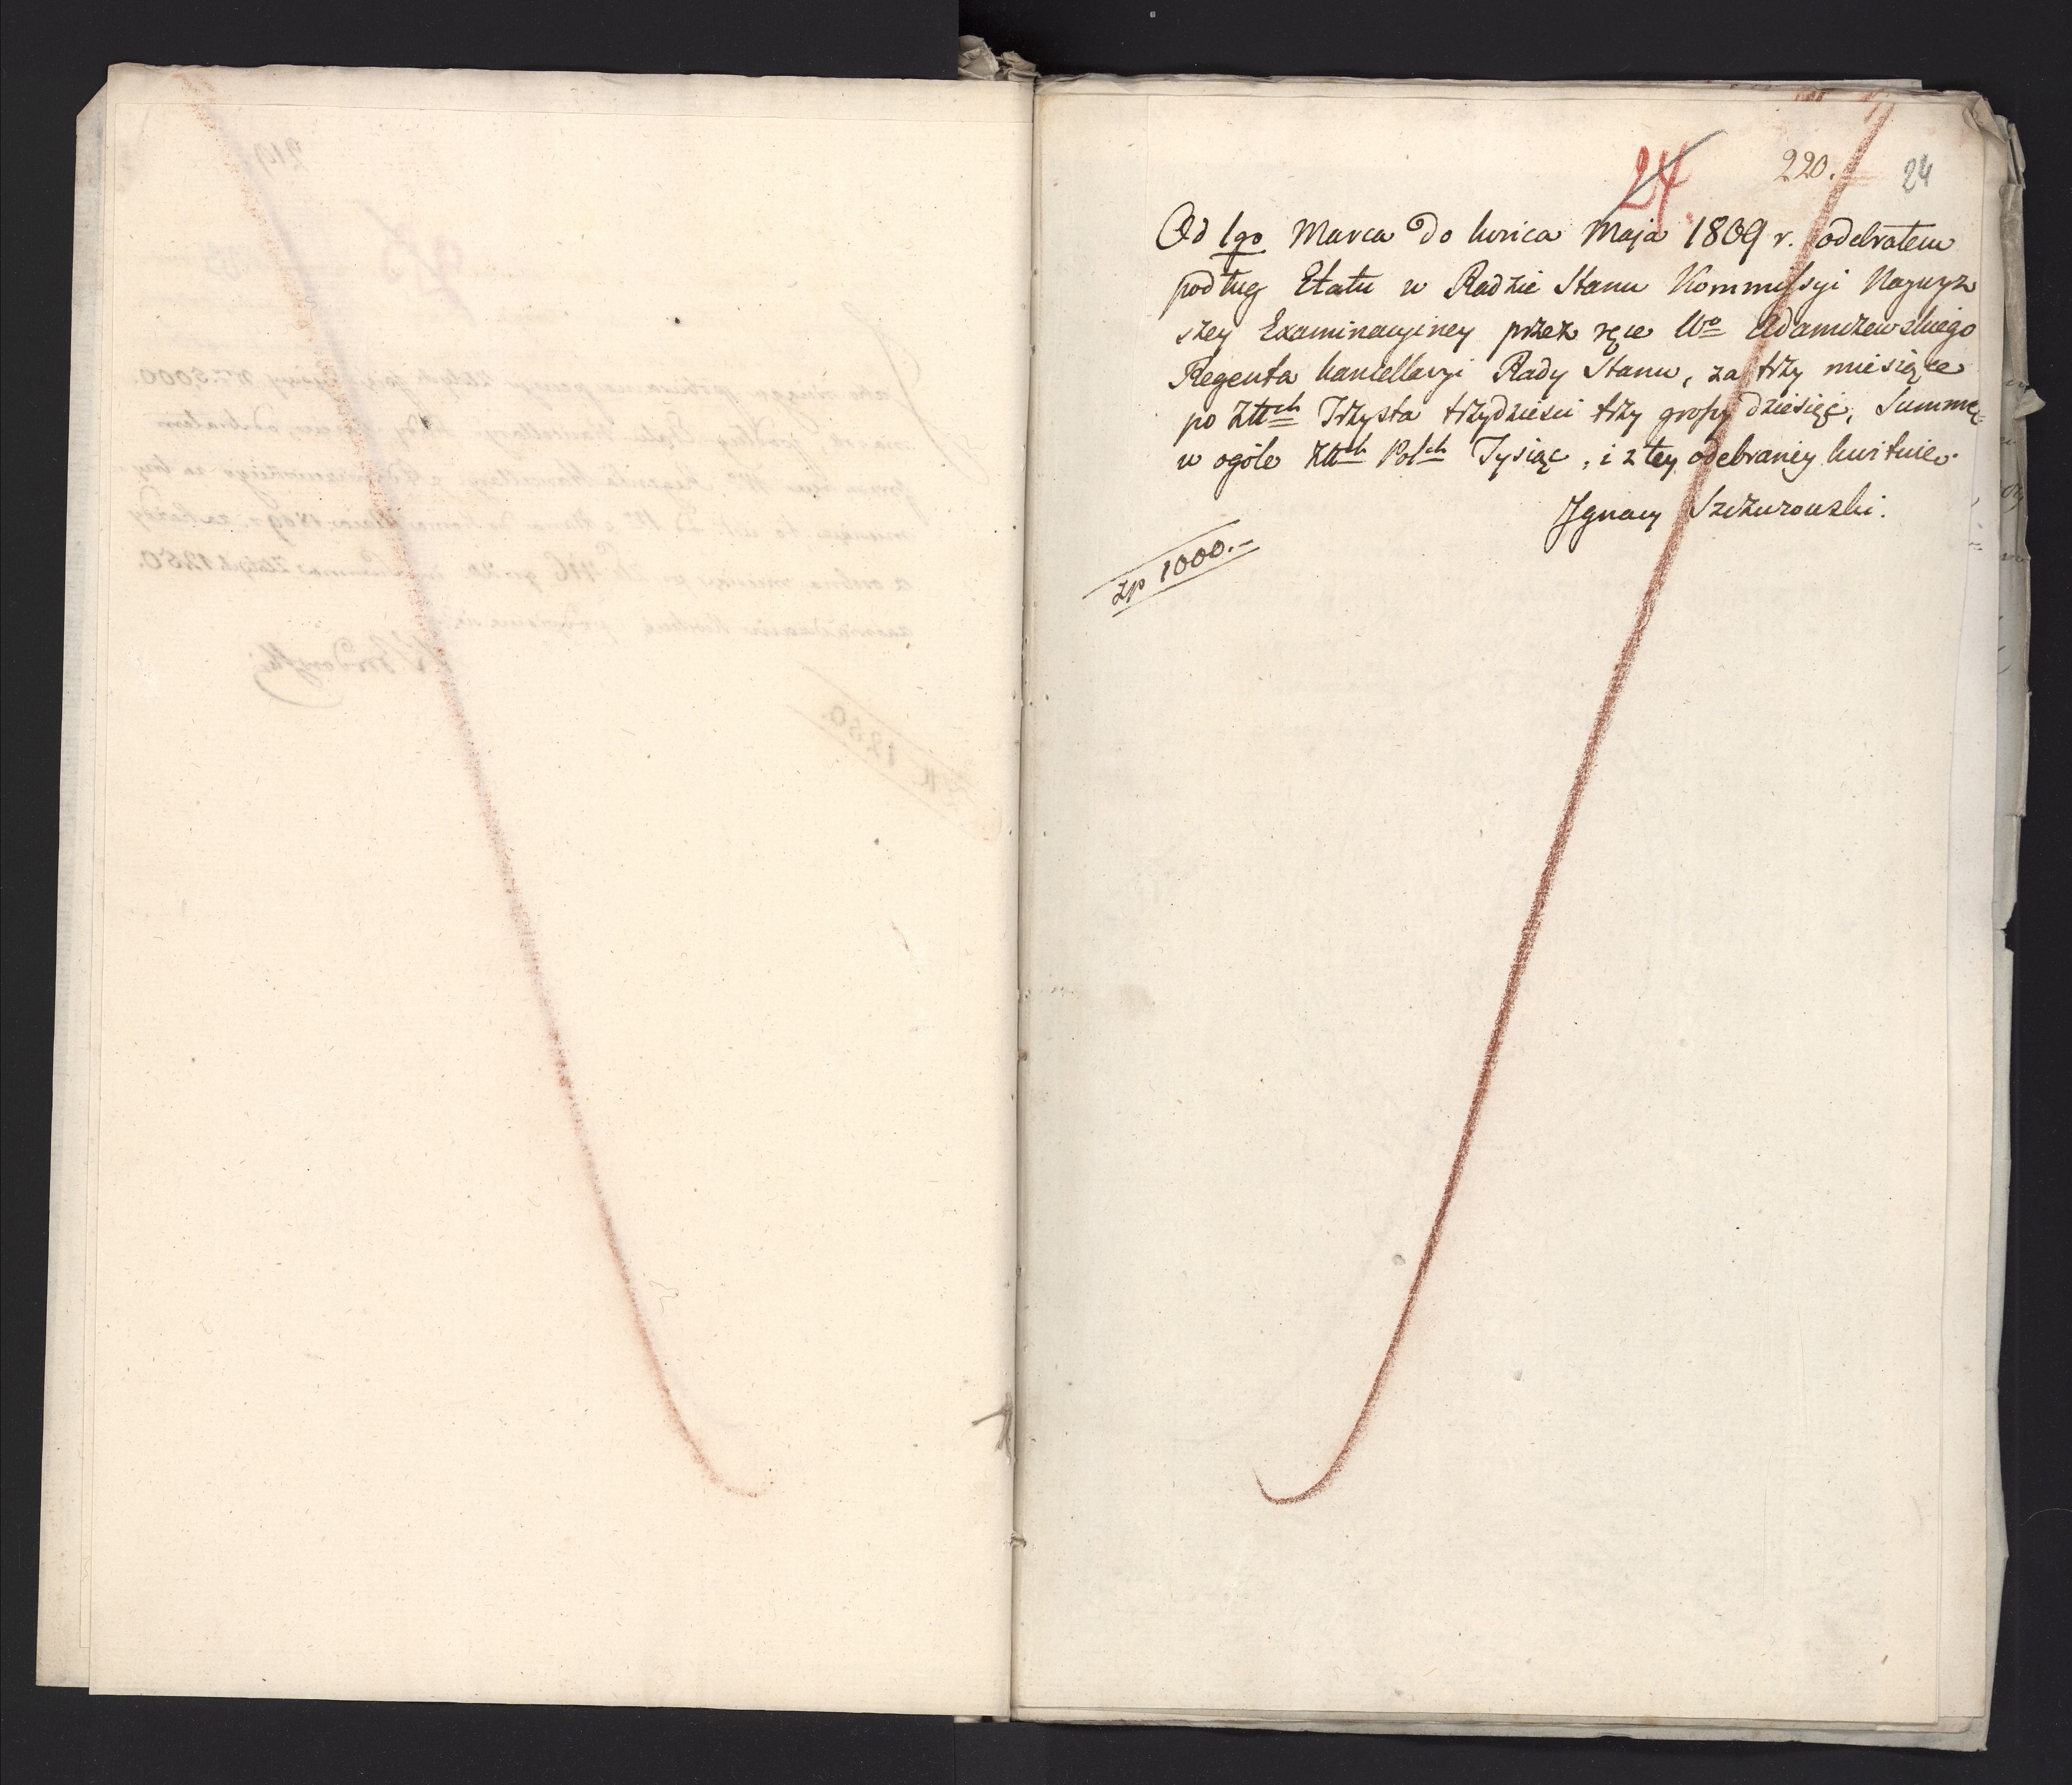 24 220. 24
Od 1go Marca do końca Maja 1809 r. odebrałem
podług Etatu w Radzie Stanu Kommissyi Naywyż
szey Examinacyiney przez ręce Wo Adamczewskiego
Regenta kancellaryi Rady Stanu, za trzy miesiące
po Złłch Trzysta trzydzieści trzy groszy dziesięć, Summę
w ogóle Złłch Polch Tysiąc, i z tey odebraney kwituie.
Ignacy Szczurowski.
zp 1000.-